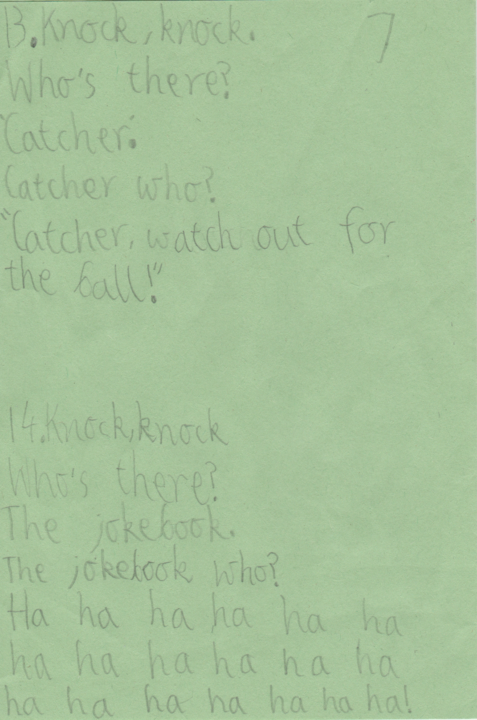 13. Knock, knock.
7
Who's there?
"Catcher."
Catcher who?
"Catcher, watch out for
the ball!"
14. Knock, knock
Who's there?
The jokebook.
The jokebook who?
Ha ha ha ha ha ha
ha ha ha ha ha ha
ha ha ha ha ha ha ha!